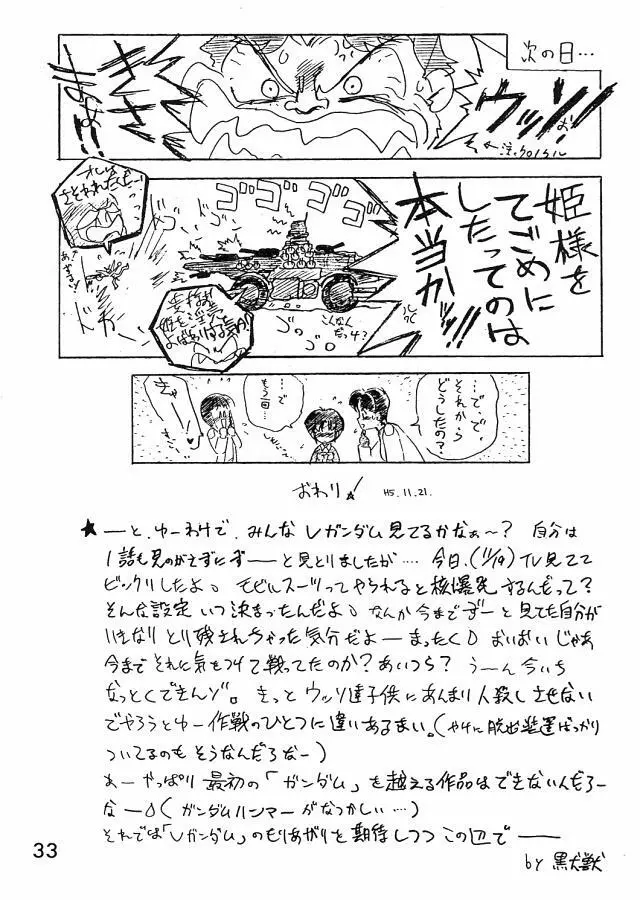 次の日…
ウッソ!!
まさ
←注.クロノクル
姫様を
てごめに
したってのは
本当かッ!!
ゴゴゴゴ
オレは
ドカーン
ゴロゴロ
こんなん
だっけ?
…で、で、
それから
どうしたの?
…で
もう一回…
きゃー!♥
おわり! H5.11.21.
★ーと、ゆーわけで、みんなVガンダム見てるかなぁ〜? 自分は
1話も見のがえずにずーーと見とりましたが…. 今日、(11/19) TV見てて
ビックリしたよ。 モビルスーツってやられると核爆発するんだって?
そんな設定いつ決まったんだよ。なんか今までずーと見てた自分が
いきなりとり残されちゃった気分だよー まったく。 おいおいじゃあ
今までそれに気をつけて戦ってたのか?あいつら? うーん今いち
なっとくできんゾ。 きっと ウッソ達子供にあんまり人殺しさせない
でやろうとゆー作戦のひとつに違いあるまい。(やけに脱出装置ばっかり
ついてるのもそうなんだろなー)
あーやっぱり最初の「ガンダム」を越える作品はできないんだろー
なー。(ガンダムハンマーがなつかしい…)
それでは「Vガンダム」のもりあがりを期待しつつ この辺でーー
by 黒犬獣
33